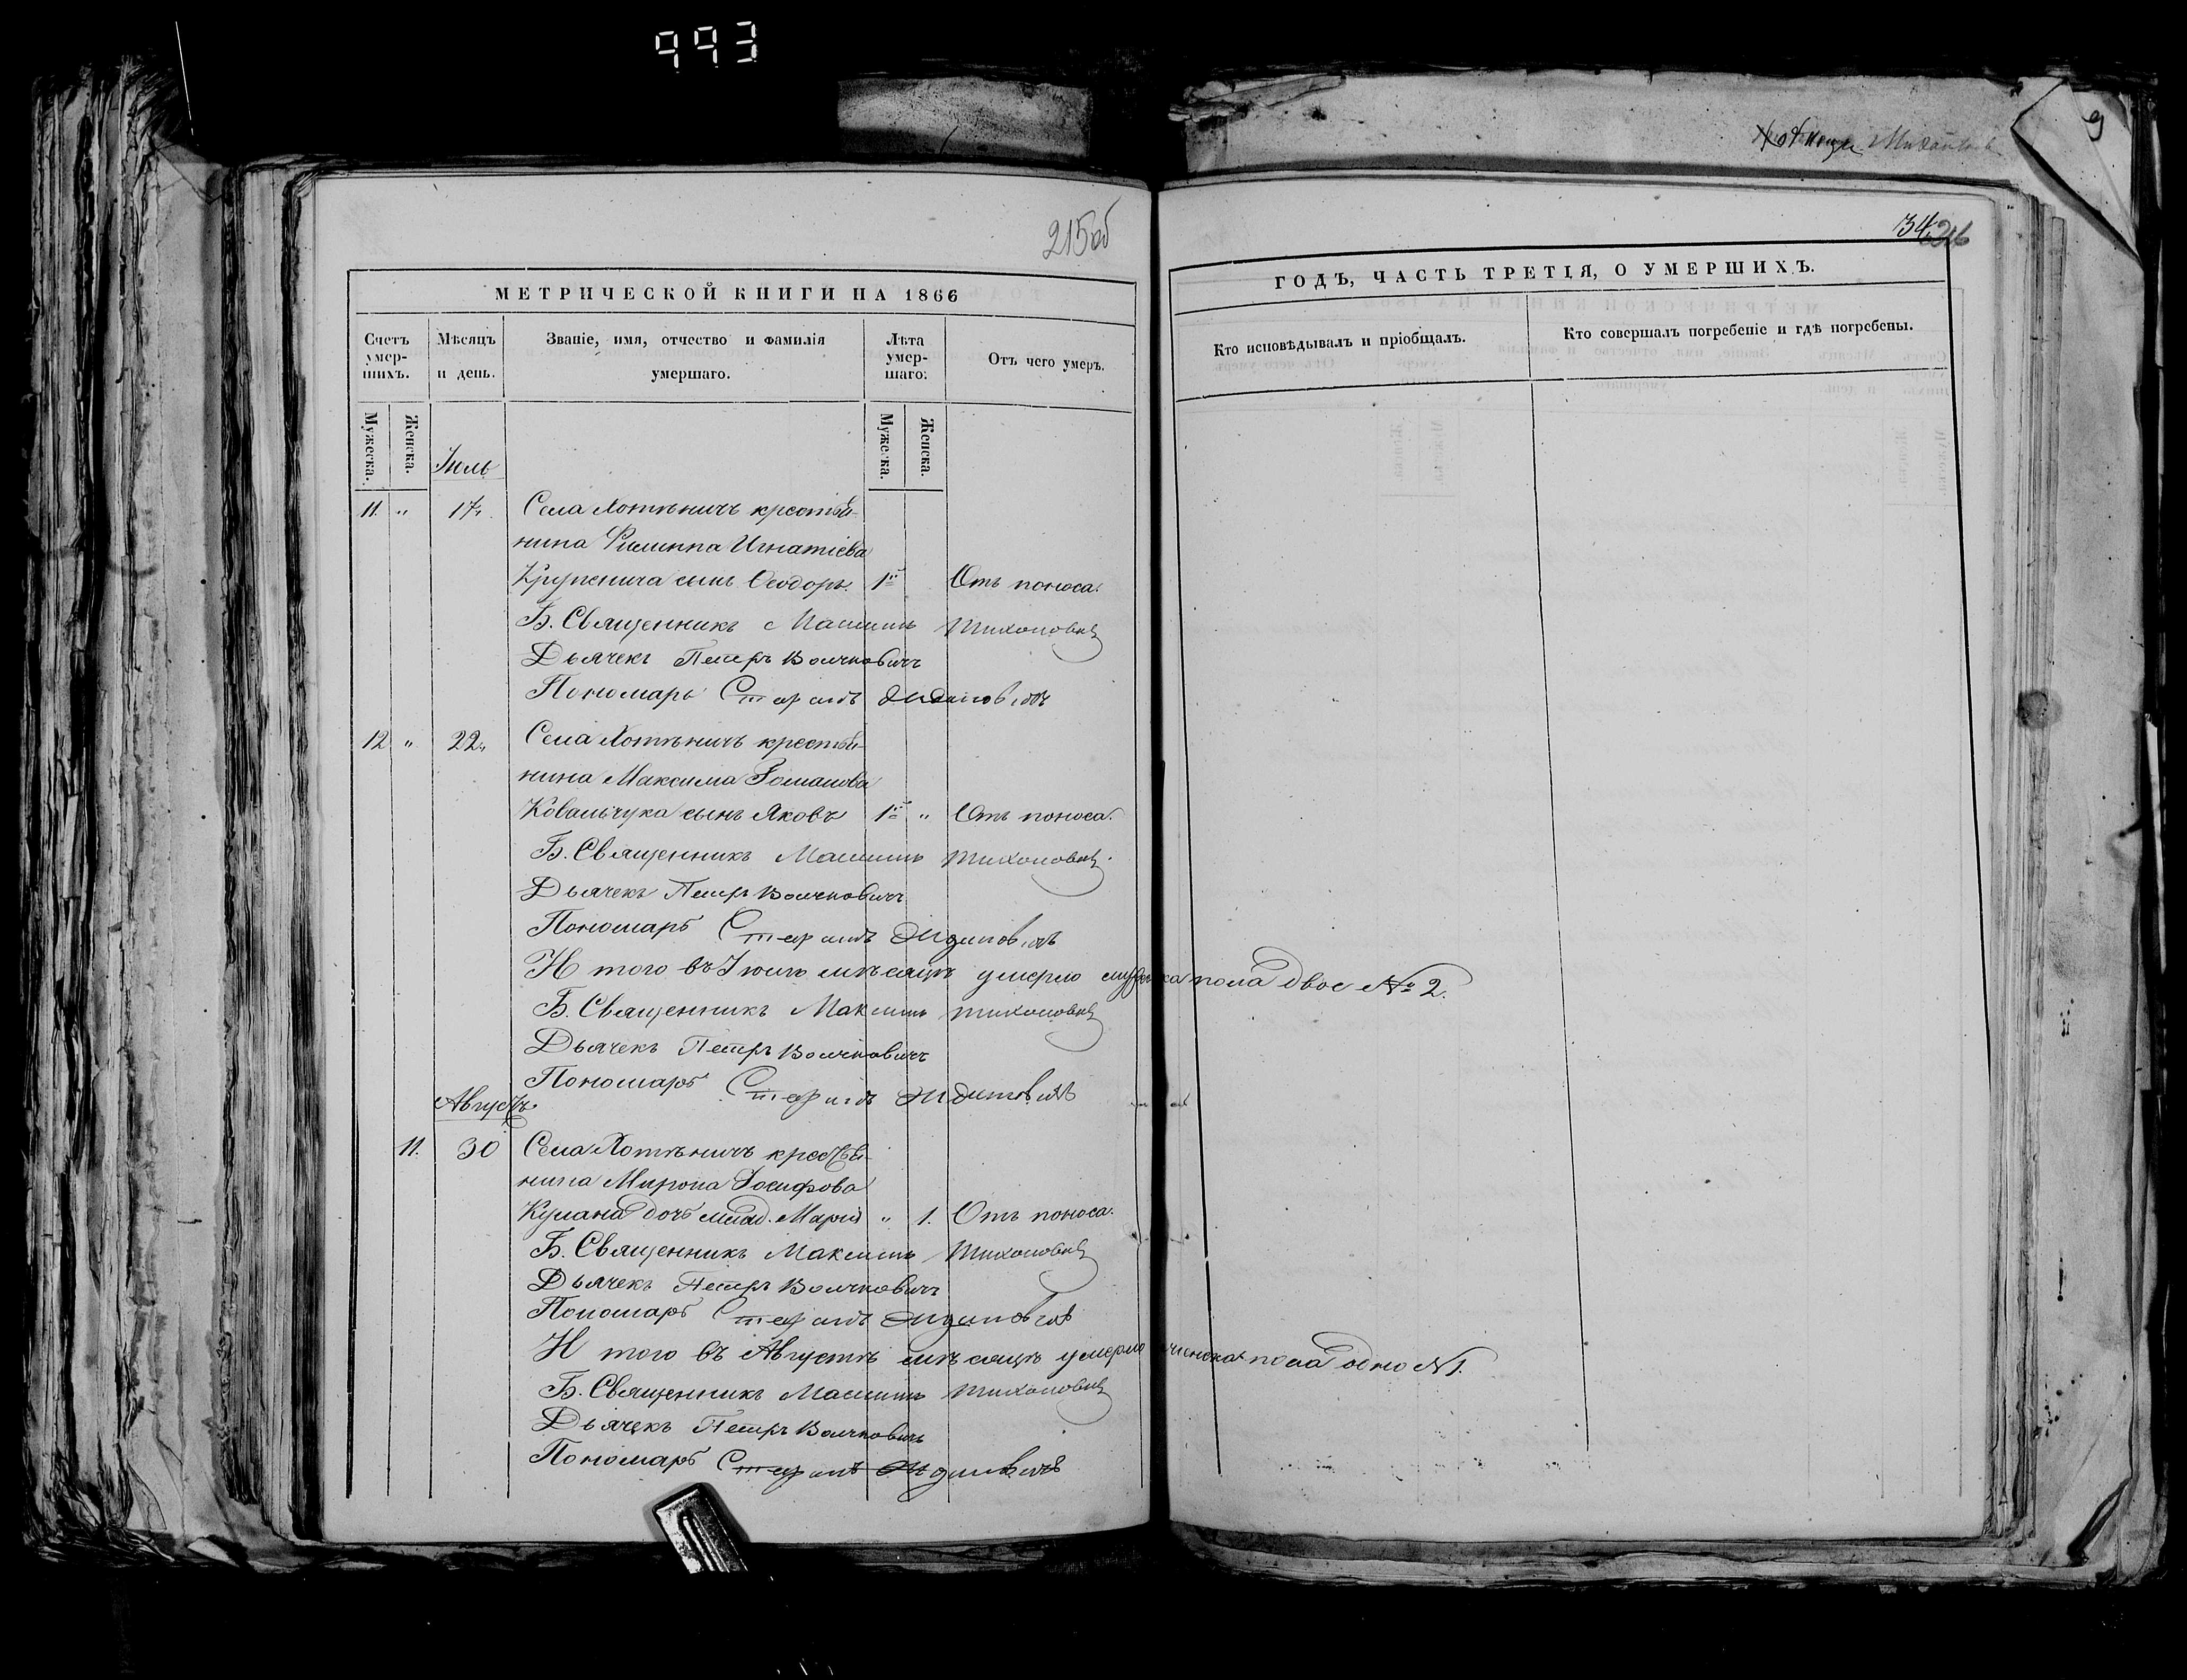 993
215об
МЕТРИЧЕСКОЙ КНИГИ НА 1866
Счетъ умер- шихъ.
Мѣсяцъ и день.
Званіе, имя, отчество и фамилія умершаго.
Лѣта умер- шаго.
Отъ чего умеръ.
Мужеска.
Женска.
Мужеска.
Женска.
Іюль
11. " 17. Села Хотѣничъ крестья-
нина Филиппа Игнатіева
Крупенича сынъ Ѳеодоръ. 1й Отъ поноса.
Б. Священникъ Максимъ Тихоновичъ
Дьячекъ Петръ Волчковичъ
Пономарь Стефанъ
12 " 22. Села Хотѣничъ крестья-
нина Максима Романова
Ковальчука сынъ Яковъ 1й " Отъ поноса.
Б. Священникъ Максимъ Тихоновичъ
Дьячекъ Петръ Волчковичъ
Пономарь Стефанъ
И того въ Іюлѣ мѣсяцѣ умерло мужеска пола двое № 2.
Б. Священникъ Максимъ Тихоновичъ
Дьячекъ Петръ Волчковичъ
Пономарь Стефанъ
Августъ
11. 30 Села Хотѣничъ крестья-
нина Мирона Іосифова
Кулана дочь млад. Марія " 1. Отъ поноса.
Б. Священникъ Максимъ Тихоновичъ
Дьячекъ Петръ Волчковичъ
Пономарь Стефанъ
И того въ Августѣ мѣсяцѣ умерло женска пола одно №1.
Б. Священникъ Максимъ Тихоновичъ
Дьячекъ Петръ Волчковичъ
Пономарь Стефанъ
9
34. 216
ГОДЪ, ЧАСТЬ ТРЕТІЯ, О УМЕРШИХЪ.
Кто исповѣдывалъ и пріобщалъ.
Кто совершалъ погребеніе и гдѣ погребены.